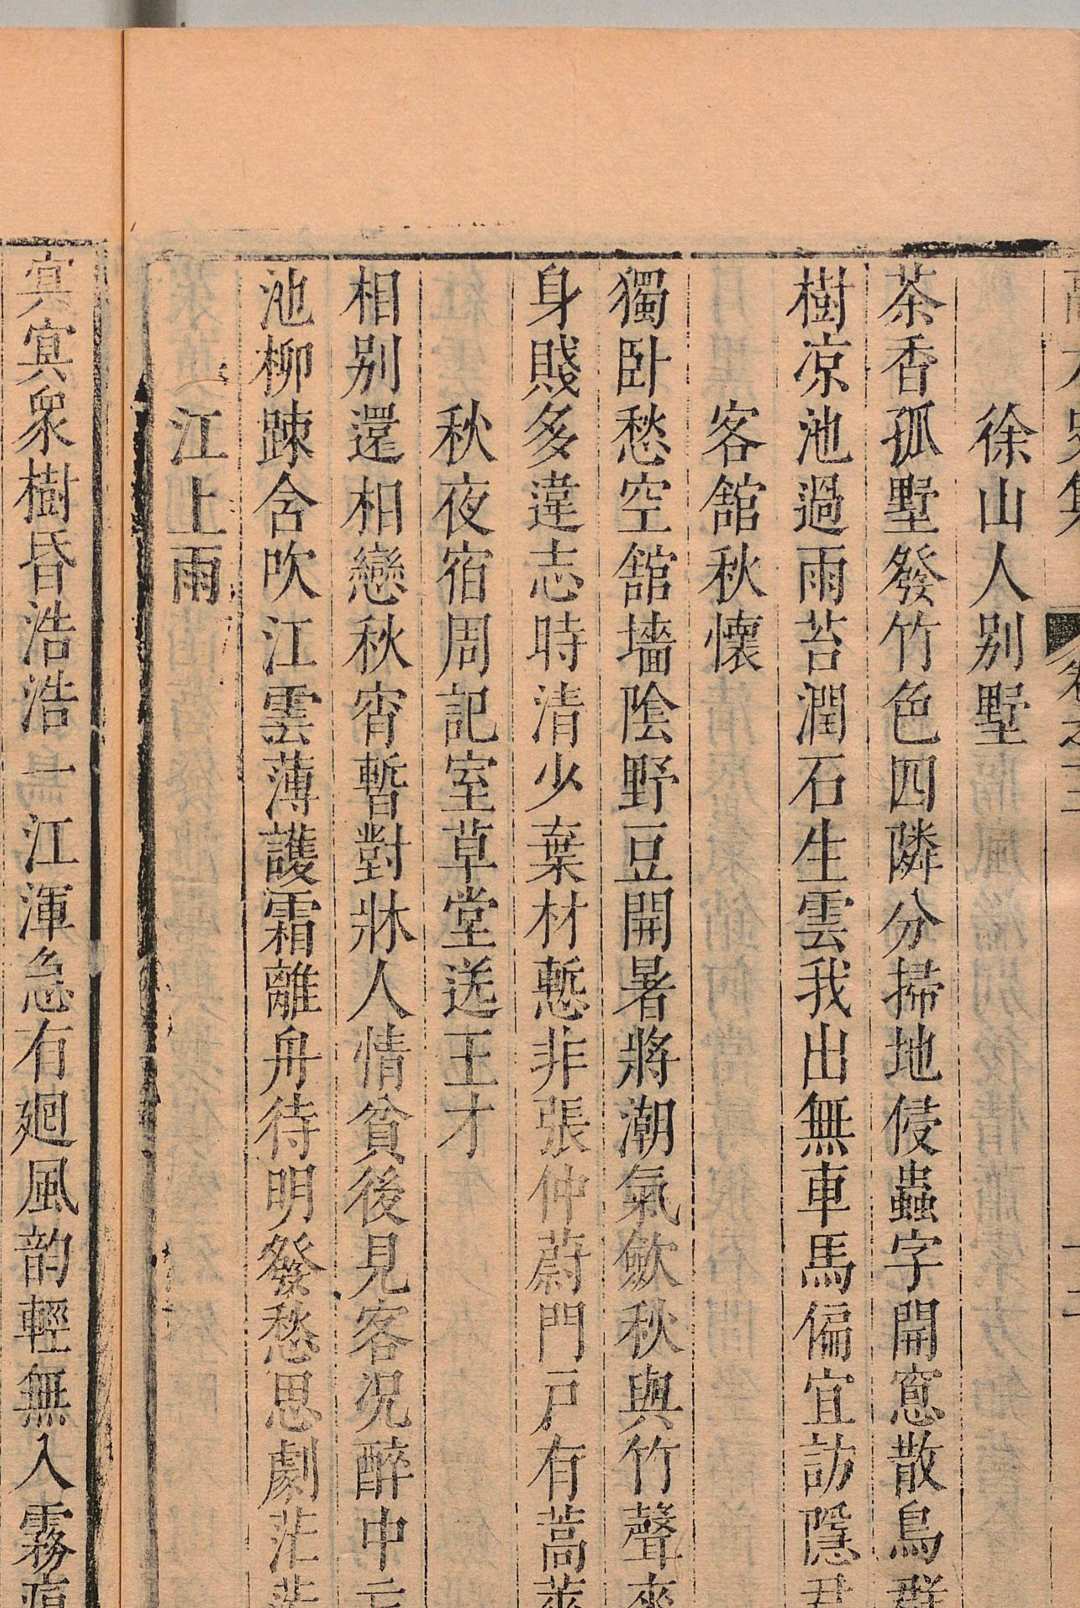 徐山人别墅
茶香孤墅發竹色四隣分掃地侵蟲字開窻散鳥群
樹凉池過雨苔潤石生雲我出無車馬偏宜訪隱君
客舘秋懷
獨卧愁空舘墻陰野豆開暑將潮氣歛秋與竹聲來
身賤多違志時清少棄材慙非張仲蔚門戸有蒿萊
秋夜宿周記室草堂送王才
相别還相戀秋宵暫對牀人情貧後見客况醉中
池柳踈含吹江雲薄護霜離舟待明發愁思劇茫茫
江上雨
㝠㝠衆樹昏浩浩一江渾急有廻風韵輕無入霧痕